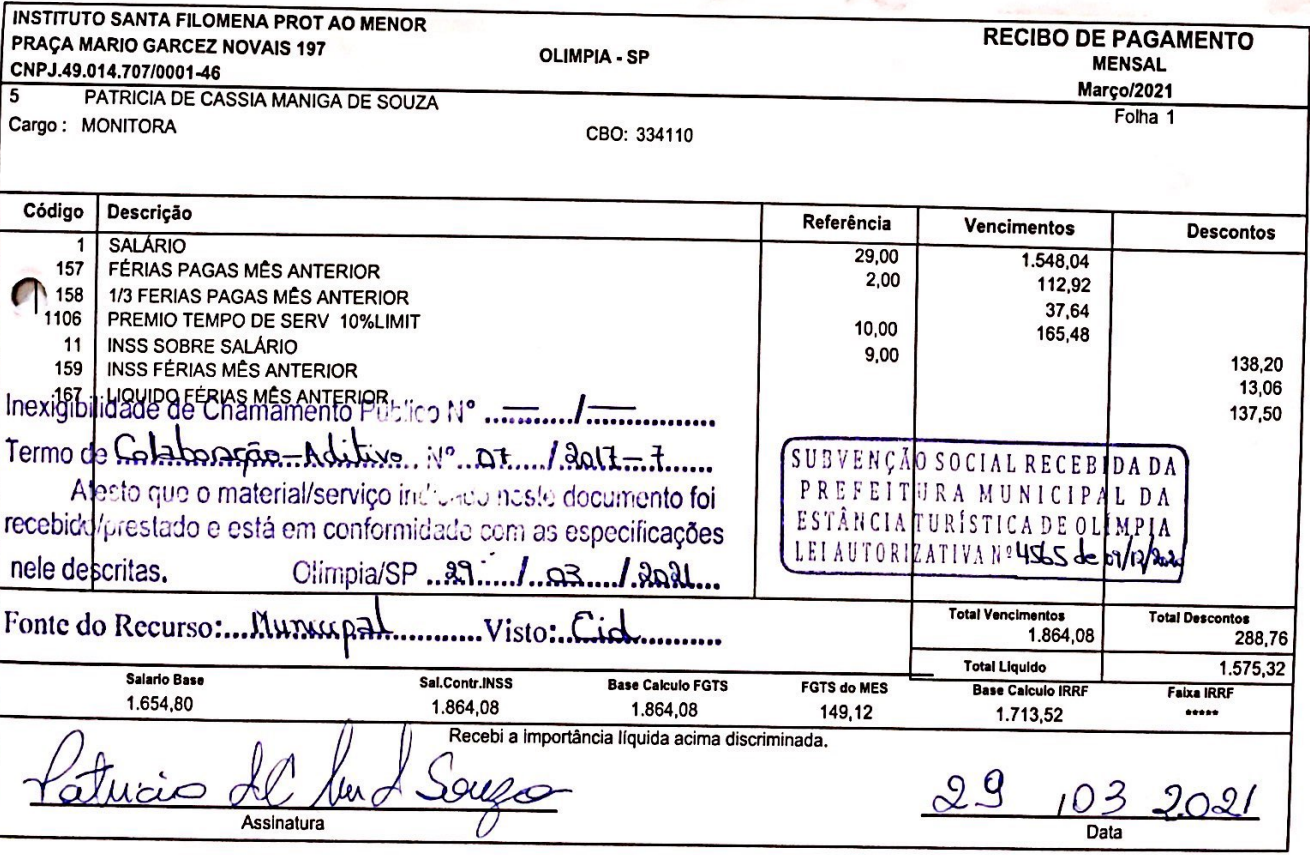 INSTITUTO SANTA FILOMENA PROT AO MENOR
PRAÇA MARIO GARCEZ NOVAIS 197 OLIMPIA - SP
CNPJ.49.014.707/0001-46
RECIBO DE PAGAMENTO
MENSAL
Março/2021
5 PATRICIA DE CASSIA MANIGA DE SOUZA
Folha 1
Cargo : MONITORA CBO: 334110
Código Descrição Referência Vencimentos Descontos
1 SALÁRIO 29,00 1.548,04
157 FÉRIAS PAGAS MÊS ANTERIOR 2,00 112,92
158 1/3 FERIAS PAGAS MÊS ANTERIOR 37,64
1106 PREMIO TEMPO DE SERV 10%LIMIT 10,00 165,48
11 INSS SOBRE SALÁRIO 9,00 138,20
159 INSS FÉRIAS MÊS ANTERIOR 13,06
167 LIQUIDO FÉRIAS MÊS ANTERIOR 137,50
Inexigibilidade de Chamamento Público Nº ...—.../...—...
Termo de Colaboração-Aditivo Nº 07 / 2017-7
Atesto que o material/serviço indicado neste documento foi
recebido/prestado e está em conformidade com as especificações
nele descritas. Olímpia/SP 29 / 03 / 2021
SUBVENÇÃO SOCIAL RECEBIDA DA
PREFEITURA MUNICIPAL DA
ESTÂNCIA TURÍSTICA DE OLÍMPIA
LEI AUTORIZATIVA Nº 4565 de 09/12/2020
Fonte do Recurso: Municipal Visto: Cid
Total Vencimentos Total Descontos
1.864,08 288,76
Total Liquido 1.575,32
Salario Base Sal.Contr.INSS Base Calculo FGTS FGTS do MES Base Calculo IRRF Faixa IRRF
1.654,80 1.864,08 1.864,08 149,12 1.713,52 *****
Recebi a importância líquida acima discriminada.
29 03 2021
Assinatura Data